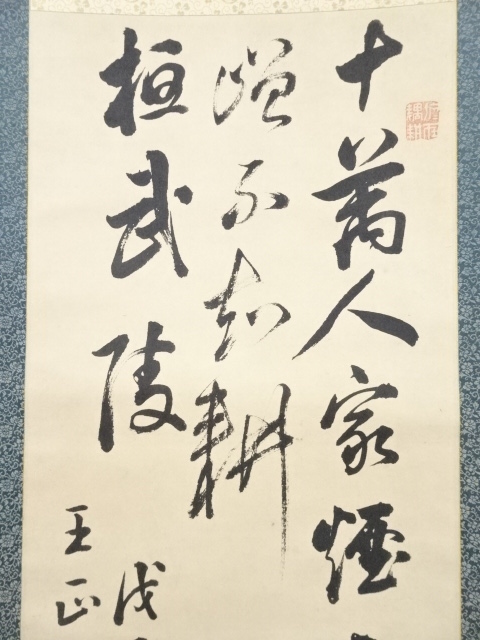 十萬人家煙
不知耕
桓武陵
戊
王正